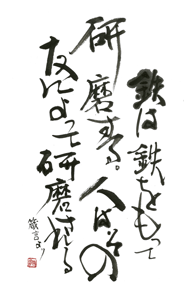 鉄は鉄をもって
研磨する。人はその
友によって研磨される
箴言より